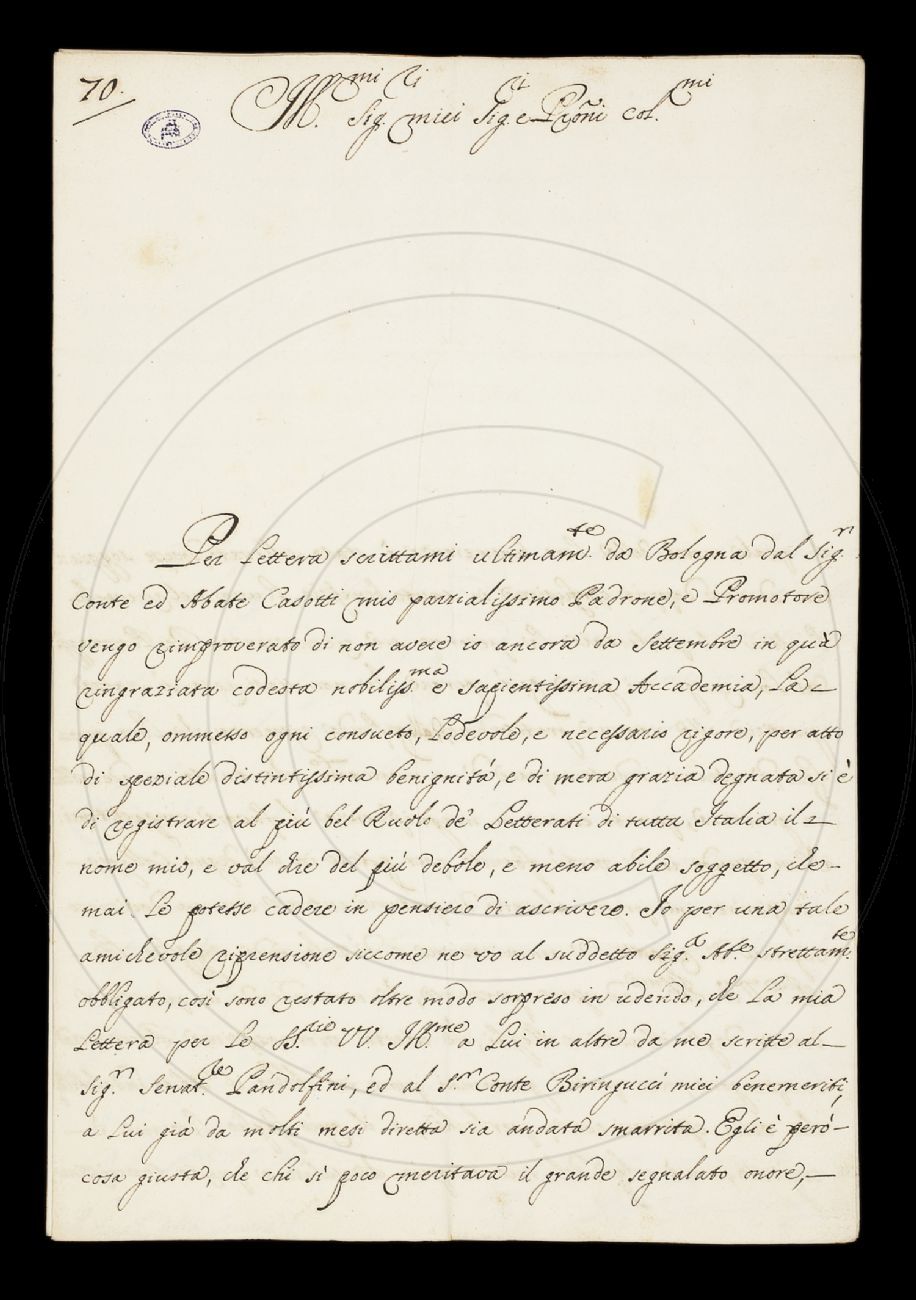 70.
Ill.mi Sig.ri miei Sig.ri e Pròni Col.mi
Per Lettera scrittami ultimam.te da Bologna dal Sig.r
Conte ed Abate Casotti mio parzialissimo Padrone, e Promotore
vengo rimproverato di non avere io ancora da Settembre in quà
ringraziata codesta nobiliss.ma e sapientissima Accademia, La
quale, ommesso ogni consueto, Lodevole, e necessario rigore, per atto
di speziale distintissima benignitá, e di mera grazia degnata si è
di registrare al piú bel Ruolo de' Letterati di tutta Italia il
nome mio, e val dire del piú debole, e meno abile soggetto, che
mai Le potesse cadere in pensiero di ascrivere. Io per una tale
amichevole riprensione siccome ne vo al suddetto Sig.r Ab.e strettam.te
obbligato, cosi sono restato oltre modo sorpreso in udendo, che La mia
Lettera per Le SS.rie VV. Ill.me a Lui in altre da me scritte al
Sig.r Senat.re Pandolfini, ed al S.r Conte Biringucci miei benemeriti,
a Lui già da molti mesi diretta sia andata smarrita. Egli è però
cosa giusta, che chi si poco meritava il grande segnalato onore,